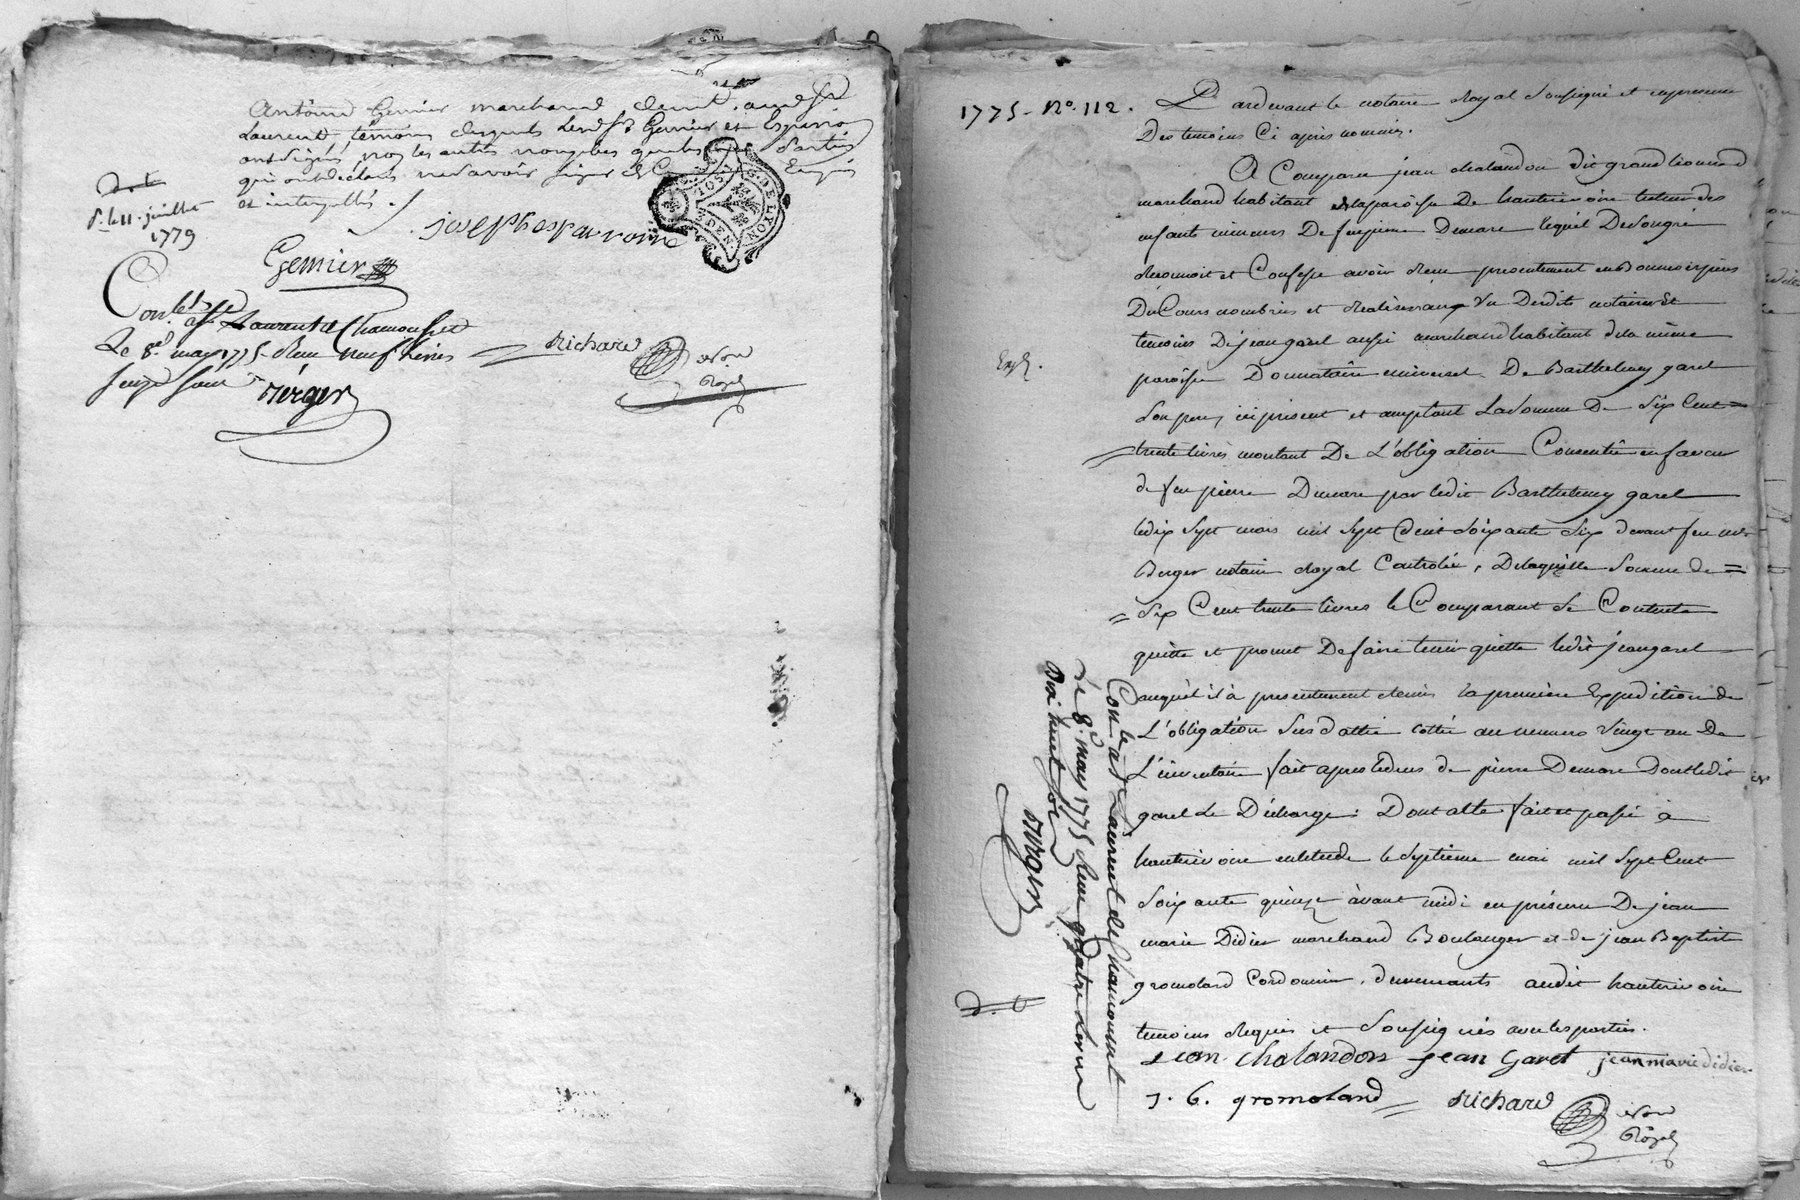 Antoine Genier marchand demt. audt. St
Laurent témoins desquels lesdt. Srs Genier et Esparron
ont signé, non les autres
qui ont declaré ne savoir signer de ce Enquis
et interpellés ./.
Sé. le 11. juillet
1779
josephesparronn
Genier
Conlé. à St. Laurent de Chamousset
Le 8e. may 1775 Reçu neuf livres
Berger
Richard
Nore
Royal
G. DE LYON
1775 - No. 112.
Pardevant le notaire Royal soussigné et en presence
Des temoins Ci après nommés.
A Comparu jean chalandon dit grand leonard
marchand habitant en la paroisse De hauterivoire tuteur des
enfants mineurs De feu pierre Demare lequel De son gré
Reconnoit et Confesse avoir Reçu presentement en Bonnes especes
Du Cours nombrées et Realisées au Vu Desdits notaire Et
temoins De jean garel aussi marchand habitant de la même
Expé.
paroisse Donnataire universel De Barthelemy garel
son pere, ici present et acceptant La Somme De Six Cent =
= trente livres montant De L'obligation Consentie en faveur
de feu pierre Demare par ledit Barthelemy garel
le dix sept mars mil sept Cent soixante Six devant feu me.
Berger notaire Royal Controlée, De laquelle Somme de =
= Six Cent trente livres le Comparant Se Contente
quitte et promet De faire tenir quitte ledit jean garel
auquel il à presentement remis la premiere Expedition de
L'obligation Susdattée cottée au numero vingt un De
L'inventaire fait après le deces de pierre Demare Dont ledit
garel Le Décharge: Dont acte fait et passé à
hauterivoire en l'etude le septieme mai mil sept Cent
soixante quinze avant midi en présence De jean
marie Didier marchand Boulanger et de jean Baptiste
gromoland Cordonnier, demeurants audit hauterivoire
temoins Requis et Soussignés avec les parties.
jean chalandon jean Garel jean marie didier
J. B. gromoland = Richard
Nore
Royal
Conlé. à St. Laurent de Chamousset
Le 8e. may 1775 Reçu quatre livres
Dix huit sols
Berger